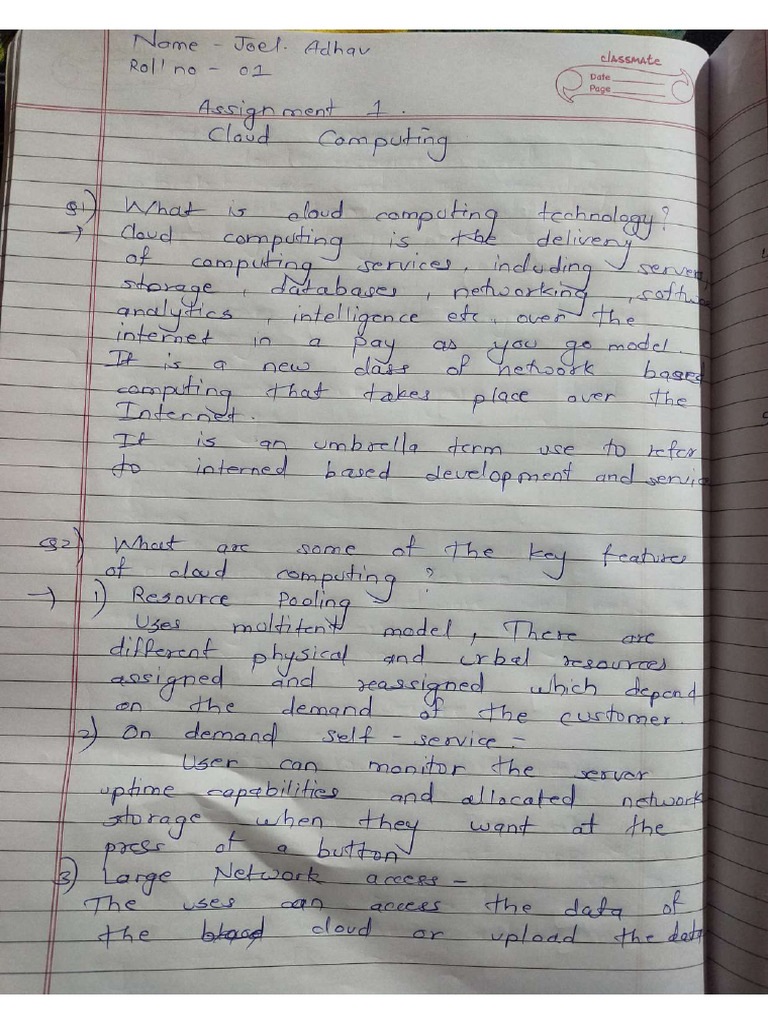 Name - Joel. Adhav
Roll no - 01
classmate
Date
Page
Assignment 1.
Cloud Computing
Q1) What is cloud computing technology?
→ Cloud computing is the delivery
of computing services, including server,
storage, databases, networking, softwa
analytics, intelligence etc, over the
internet in a pay as you go model.
It is a new class of network based
computing that takes place over the
Internet.
It is an umbrella term use to refer
to interned based development and servic
Q2) What are some of the key features
of cloud computing?
→ 1) Resource Pooling -
Uses moltitent model, There are
different physical and urbal resources
assigned and reassigned which depend
on the demand of the customer.
2) On demand self-service -
User can monitor the server
uptime capabilities and allocated network
storage when they want at the
press of a button
3) Large Network access -
The uses can access the data of
the cloud or upload the data